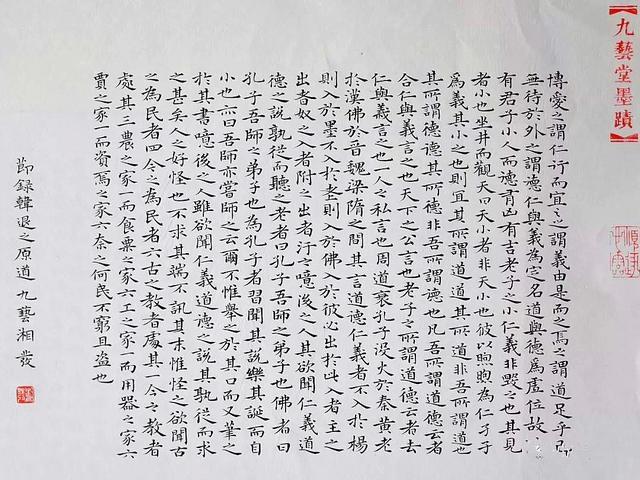 【九藝堂墨蹟】
博愛之謂仁行而宜之之謂義由是而之焉之謂道足乎己
無待於外之謂德仁與義為定名道與德為虛位故
有君子小人而德有凶有吉老子之小仁義非毀之也其見
者小也坐井而觀天曰天小者非天小也彼以煦煦為仁孑孑
為義其小之也則宜其所謂道道其所道非吾所謂道也
其所謂德德其所德非吾所謂德也凡吾所謂道德云者
合仁與義言之也天下之公言也老子之所謂道德云者去
仁與義言之也一人之私言也周道衰孔子没火於秦黃老
於漢佛於晉魏梁隋之間其言道德仁義者不入於楊
則入於墨不入於老則入於佛入於彼必出於此入者主之
出者奴之入者附之出者汙之噫後之人其欲聞仁義道
德之說孰從而聽之老者曰孔子吾師之弟子也佛者曰
孔子吾師之弟子也為孔子者習聞其說樂其誕而自
小也亦曰吾師亦嘗師之云爾不惟舉之於其口而又筆之
於其書噫後之人雖欲聞仁義道德之說其孰從而求
之甚矣人之好怪也不求其端不訊其末惟怪之欲聞古
之為民者四今之為民者六古之教者處其一今之教者
處其三農之家一而食粟之家六工之家一而用器之家六
賈之家一而資焉之家六奈之何民不窮且盜也
節錄韓退之原道 九藝湘發